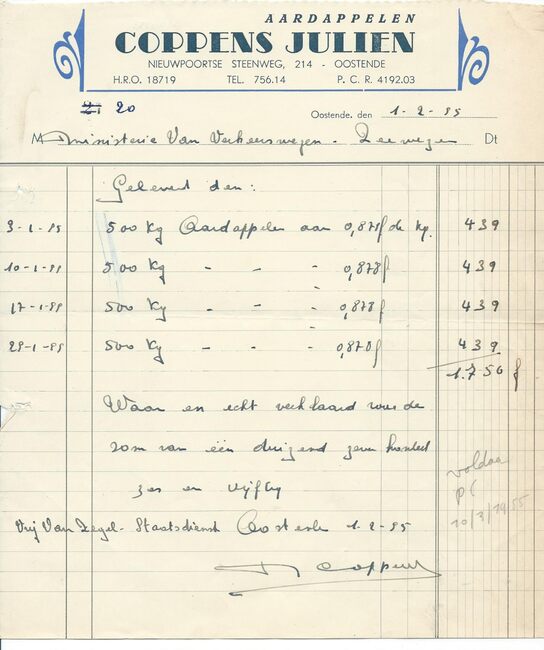 AARDAPPELEN
COPPENS JULIEN
NIEUWPOORTSE STEENWEG, 214 - OOSTENDE
H.R.O. 18719 TEL. 756.14 P. C. R. 4192.03
20
Oostende, den 1-2-55
M Ministerie Van Verkeerswezen - Zeewezen Dt
Geleverd den:
3-1-55 500 Kg Aardappelen aan 0,878f de kg. 439
10-1-55 500 Kg - - - 0,878f 439
17-1-55 500 Kg - - - 0,878f 439
500 Kg - - - 0,878f 439
1.756 f
Waar en echt verklaard voor de
som van één duizend zeven honderd
zes en vijftig
Vrij Van Zegel - Staatsdienst Oostende 1-2-55
voldaan
PC
10/3/1955
Coppens